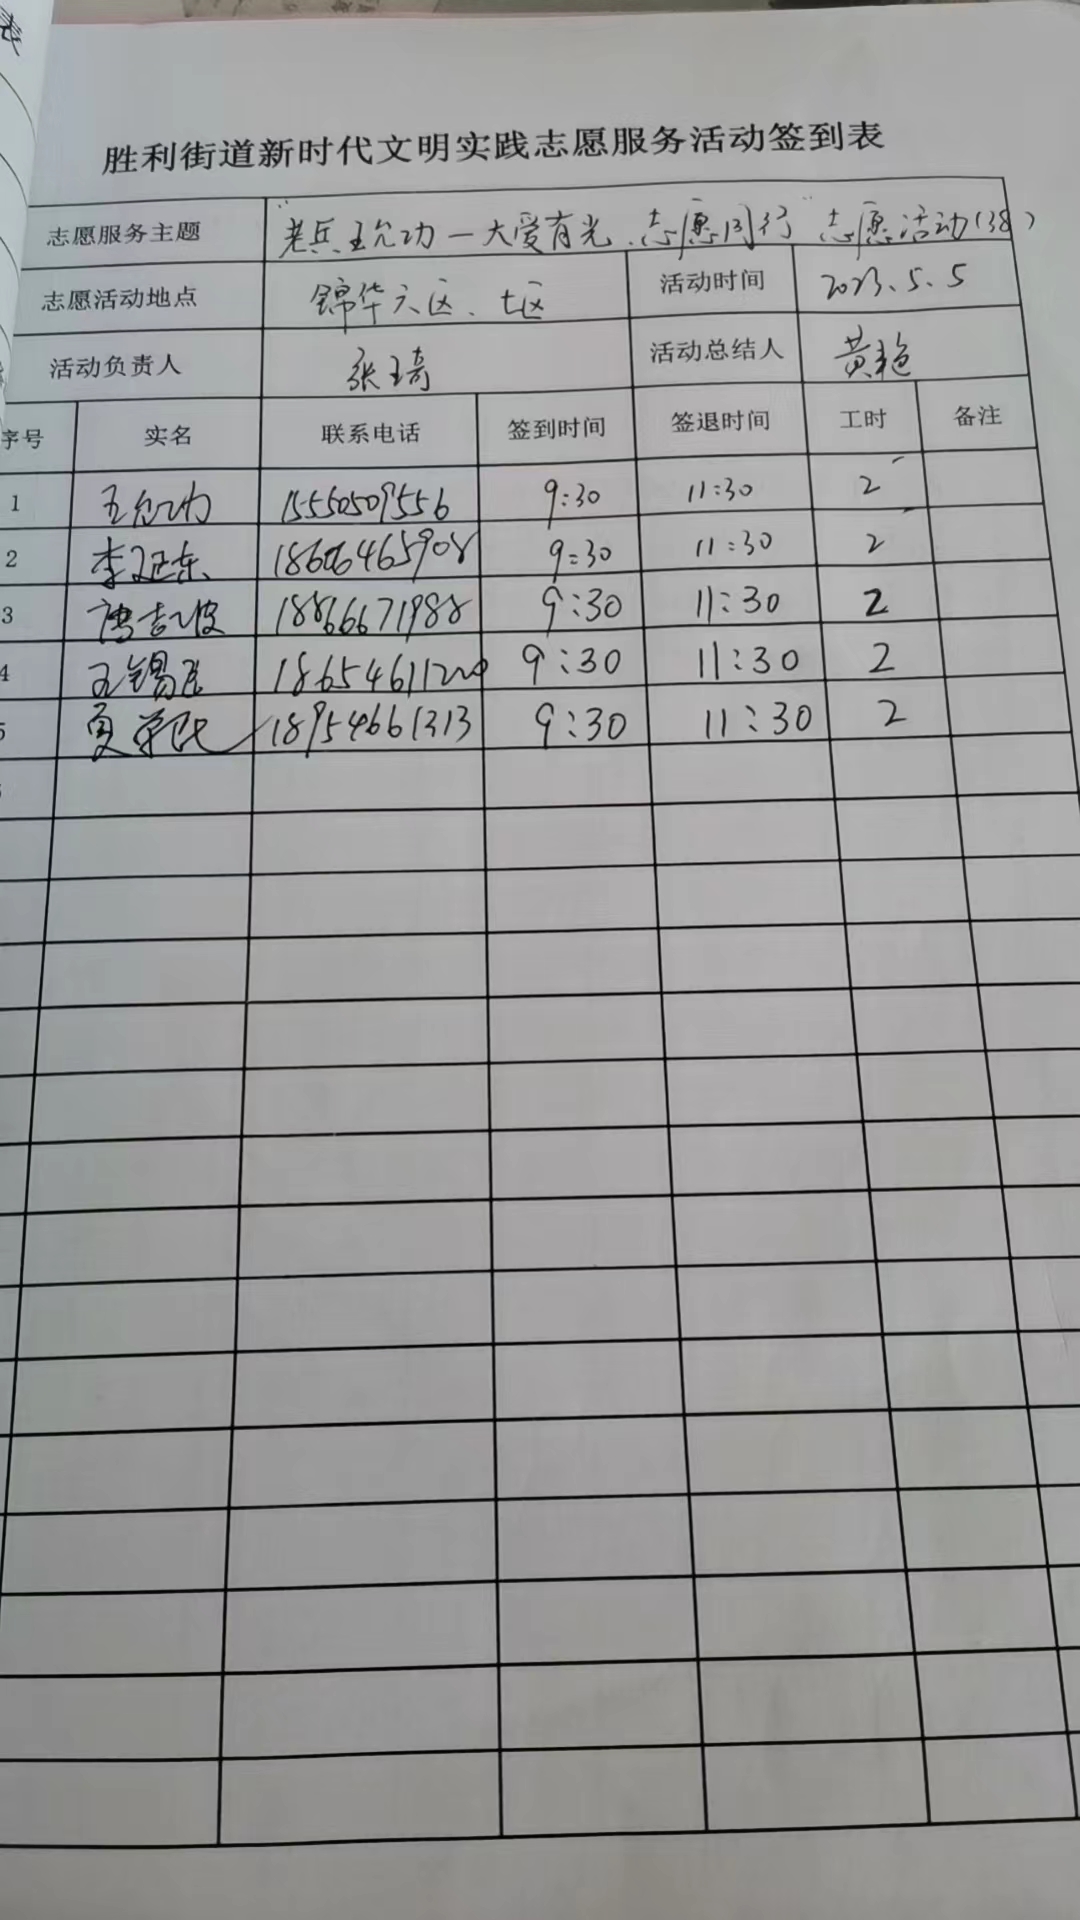 胜利街道新时代文明实践志愿服务活动签到表
志愿服务主题 老兵王允功一大爱有光、志愿同行"志愿活动(38)
志愿活动地点 锦华六区、七区 活动时间 2023.5.5
活动负责人 张琦 活动总结人 黄艳
序号 实名 联系电话 签到时间 签退时间 工时 备注
1 王允功 15550509556 9:30 11:30 2
2 李延东 18606465908 9:30 11:30 2
3 唐志波 18866671988 9:30 11:30 2
4 王锡民 18654611220 9:30 11:30 2
5 18954661313 9:30 11:30 2